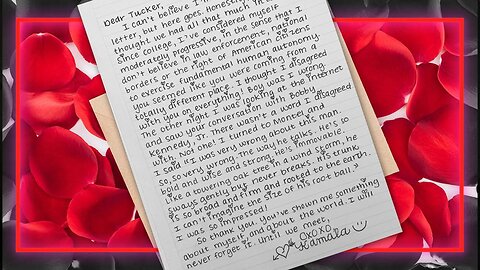 Dear Tucker,
I can't believe I'm
letter, but here goes, honestly
thought we had all that much in
since college, I've considered myself
moderately progressive, in the sense that I
don't believe in law enforcement, national
borders or the right of American citizens
to exercise fundamental human autonomy.
You seemed like you were coming from a
totally different place. I thought I disagreed
with you on everything! Boy was I wrong.
The other night I was looking at the internet
and saw your conversation with Bobby
Kennedy, Jr. There wasn't a word I disagreed
with. Not one! I turned to Montel and
I said "I was very wrong about this man.
So, so very wrong. The way he talks. He's so
bold and wise and strong. He's immovable.
Like a towering oak tree in a wind storm, he
sways gently but never breaks. His trunk,
is so broad and firm and rooted to the earth.
I can't imagine the size of his root ball."
I was so impressed!
So thank you. You've shown me something
about myself, and about the world. I will
never forget it. Until we meet,
XOXO
Kamala